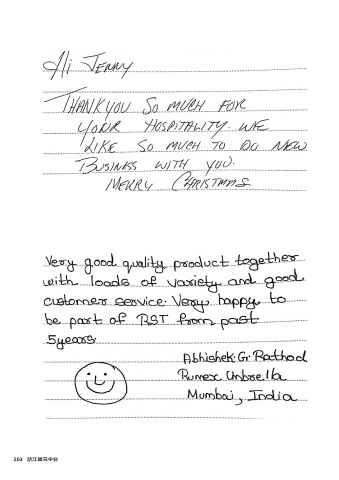 Hi Jenny
THANK YOU SO MUCH FOR
YOUR HOSPITALITY. WE
LIKE SO MUCH TO DO NEW
BUSINESS WITH YOU.
MERRY CHRISTMAS
Very good quality product together
with loads of variety and good
customer service. Very happy to
be part of RST from past
5years.
Abhishek G. Rathod
Rumex Umbrella
Mumbai, India
203 浙江